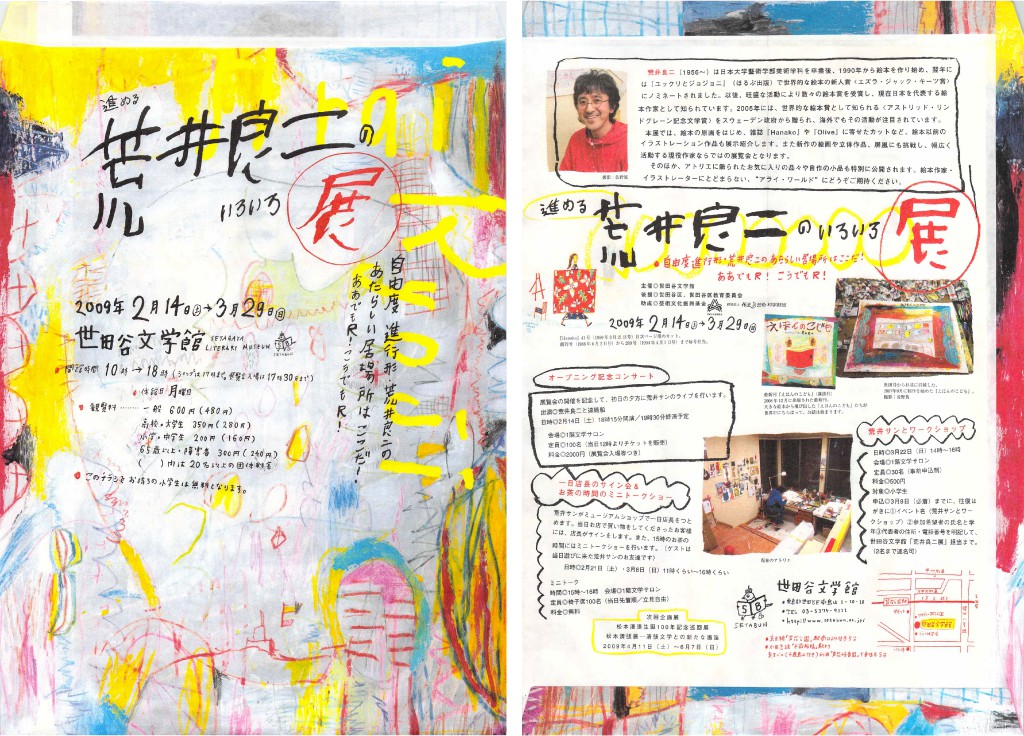 進める
荒井良二の
いろいろ
展
自由度 進行形 荒井良二の
あたらしい居場所はここだ!
ああでもR!こうでもR!
2009年 2月14日土→3月29日日
世田谷文学館 SETAGAYA LITERARY MUSEUM
SETABUN
開館時間 10時→18時
休館日 月曜日
観覧料 一般 600円(480円)
高校・大学生 350円(280円)
小学・中学生 200円(160円)
65歳以上・障害者 300円(240円)
( )内は20名以上の団体料金
このチラシをお持ちの小学生は無料となります。
荒井良二(1956~)は日本大学藝術学部美術学科を卒業後、1990年から絵本を作り始め、翌年に
は『ユックリとジョジョニ』(ほるぷ出版)で世界的な絵本の新人賞〈エズラ・ジャック・キーツ賞〉
にノミネートされました。以後、旺盛な活動により数々の絵本賞を受賞し、現在日本を代表する絵
本作家として知られています。2005年には、世界的な絵本賞として知られる〈アストリッド・リン
ドグレーン記念文学賞〉をスウェーデン政府から贈られ、海外でもその活動が注目されています。
本展では、絵本の原画をはじめ、雑誌『Hanako』や『Olive』に寄せたカットなど、絵本以前の
イラストレーション作品も展示紹介します。また新作の絵画や立体作品、屏風にも挑戦し、幅広く
活動する現役作家ならではの展覧会となります。
そのほか、アトリエに飾られたお気に入りの品々や自作の小品も特別に公開されます。絵本作家・
イラストレーターにとどまらない、“アライ・ワールド”にどうぞご期待ください。
進める
荒井良二のいろいろ
展
自由度進行形・荒井良二のあたらしい居場所はここだ!
ああでもR! こうでもR!
主催◎世田谷文学館
後援◎世田谷区、世田谷区教育委員会
助成◎芸術文化振興基金
2009年 2月14日土→3月29日日
えほんのこども
オープニング記念コンサート
展覧会の開催を記念して、初日の夕方に荒井サンのライブを行います。
出演◎荒井良二と遠路組
日時◎2月14日(土)18時15分開演/19時30分終演予定
会場◎1階文学サロン
定員◎100名(当日12時よりチケットを販売)
料金◎2000円(展覧会入場券つき)
一日店長のサイン会&
お茶の時間のミニトークショー
荒井サンがミュージアムショップで一日店長をつと
めます。当日お店で買い物をしてくださったお客様
には、店長がサインをします。また、15時のお茶の
時間にはミニトークショーを行います。(ゲストは
当日遊びに来た荒井サンのお友達です)
日時◎2月21日(土)・3月8日(日)11時くらい~16時くらい
ミニトーク
時間◎15時~16時 会場◎1階文学サロン
定員◎椅子席100名(当日先着順/立見自由)
料金◎無料
荒井サンとワークショップ
日時◎3月22日(日)14時~16時
会場◎1階文学サロン
定員◎30名(事前申込制)
料金◎500円
対象◎小学生
申込◎3月9日(必着)までに、往復は
がきに①イベント名(荒井サンとワー
クショップ)②参加希望者の氏名と学
年③代表者の住所・電話番号を明記して、
世田谷文学館「荒井良二展」担当まで。
(2名まで連名可)
次回企画展
松本清張生誕100年記念巡回展
松本清張展―清張文学との新たな邂逅
2009年4月11日(土)~6月7日(日)
SETABUN
世田谷文学館
東京都世田谷区南烏山1-10-10
TEL 03-5374-9111
http://www.setabun.or.jp/